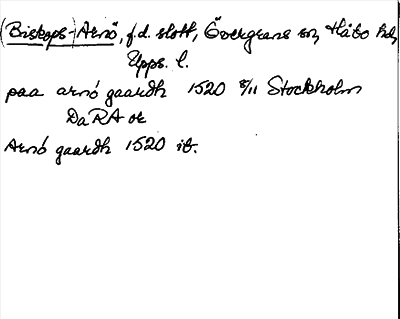 (Biskops-)Arnö, f.d. slott, Övergrans sn, Håbo hd,
Upps. l.
paa arnö gaardh 1520 8/11 Stockholm
DaRA or
Arnö gaardh 1520 ib.